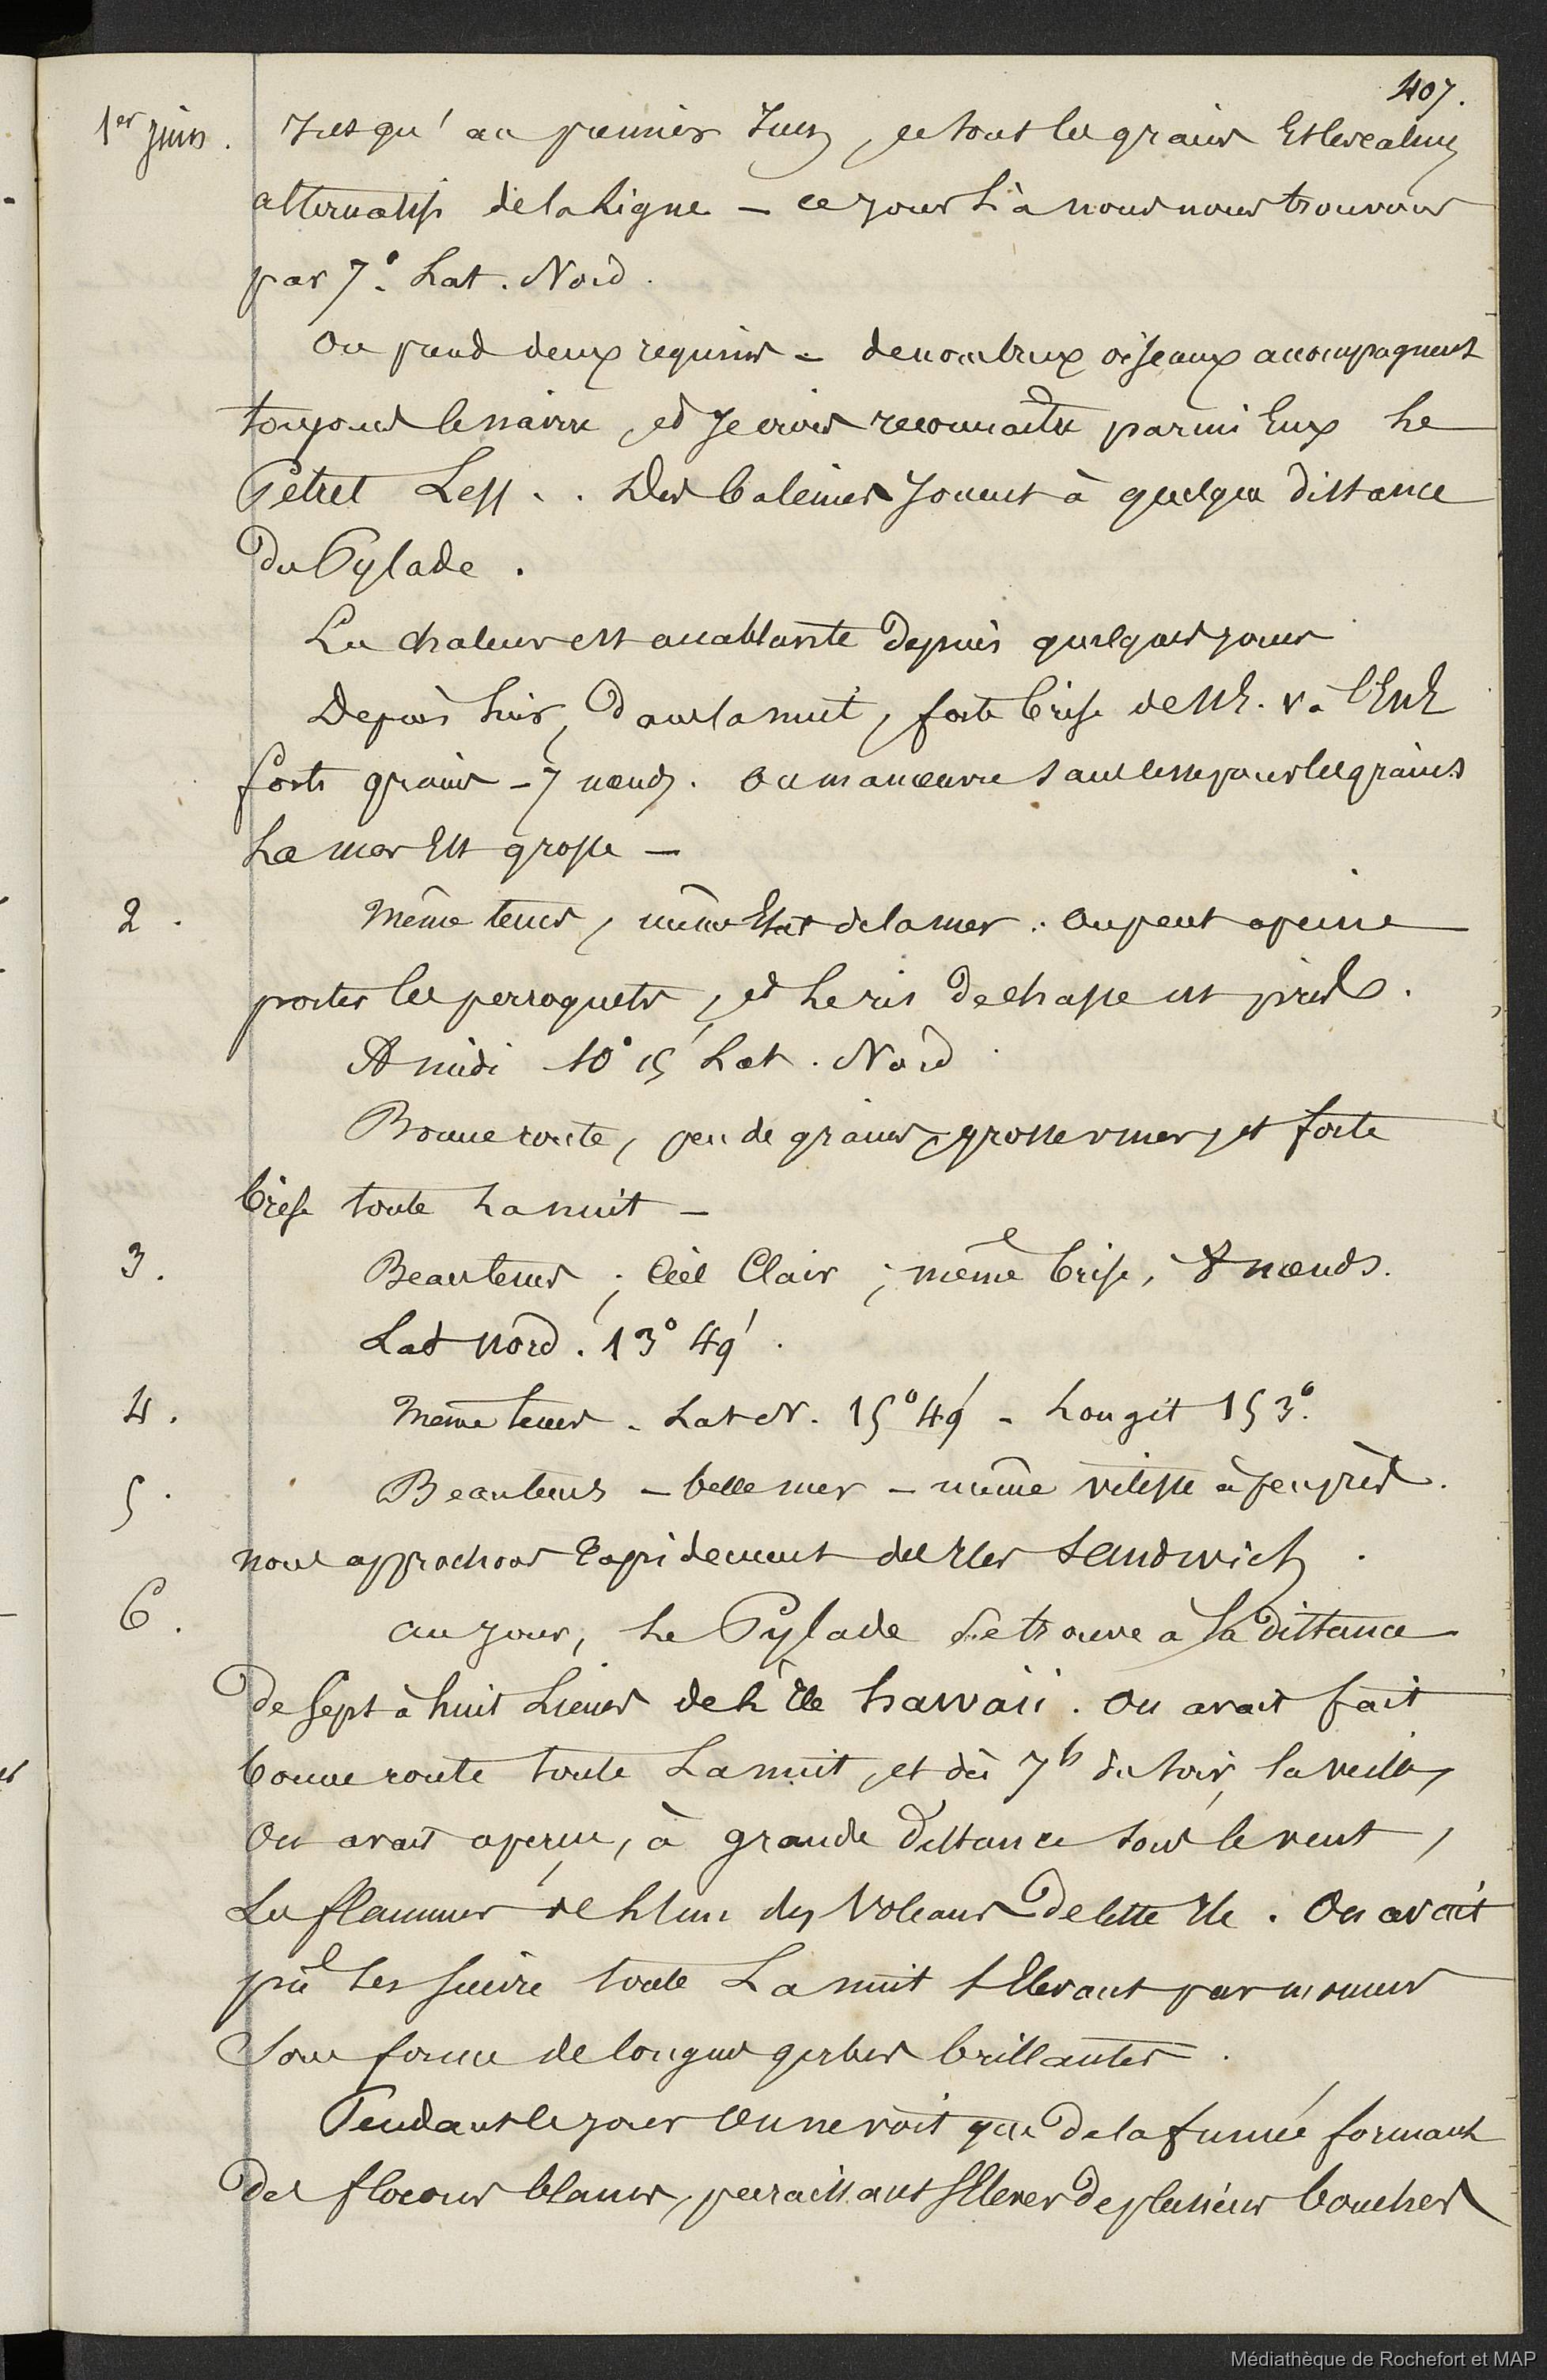 407.
1er Juin. Jusqu'au premier Juin, ce sont les grains Et les calmes
alternatifs de la Ligne - ce jour Là nous nous trouvons
par 7° Lat. Nord.
On prend deux requins - de nombreux oiseaux accompagnent
toujours le navire, et Je crois reconnaître parmi Eux Le
Pétrel Less.. Des baleines Jouent à quelque distance
Du Pylade.
La chaleur est accablante Depuis quelques jours
Depuis hier, Dans la nuit, forte brise de NE. v. à l'ENE
forts grains - 7 nœuds. On manœuvre sans cesse pour les grains
La mer Est grosse -
2. Même tems, même Etat de la mer. On peut a peine
porter les perroquets, et Le ris De chasse est pris.
A midi 10° 15' Lat. Nord
Bonne route, peu de grains, grosse mer, et forte
brise toute La nuit -
3. Beau tems ; Ciel Clair ; même brise, 8 nœuds.
Lat Nord. 13° 49'.
4. Même tems. Lat N. 15° 49' - Longit 153°.
5. Beau tems - belle mer - même vitesse à peu près.
nous approchons Rapidement des Iles Sandwich.
6. au jour, Le Pylade se trouve à la Distance
De Sept à huit Lieues de L'Ile hawaii. On avait fait
bonne route toute La nuit, et dès 7h du soir, la veille,
On avait aperçu, à grande Distance sous le vent,
Les flammes de L'un des Volcans De cette Ile. On avait
pû les suivre toute La nuit s'Elevant par momens
Sous forme de longues gerbes brillantes.
Pendant le jour On ne voit que De la fumée formant
Des flocons blancs, paraissant s'Elever De plusieurs bouches
Médiathèque de Rochefort et MAP